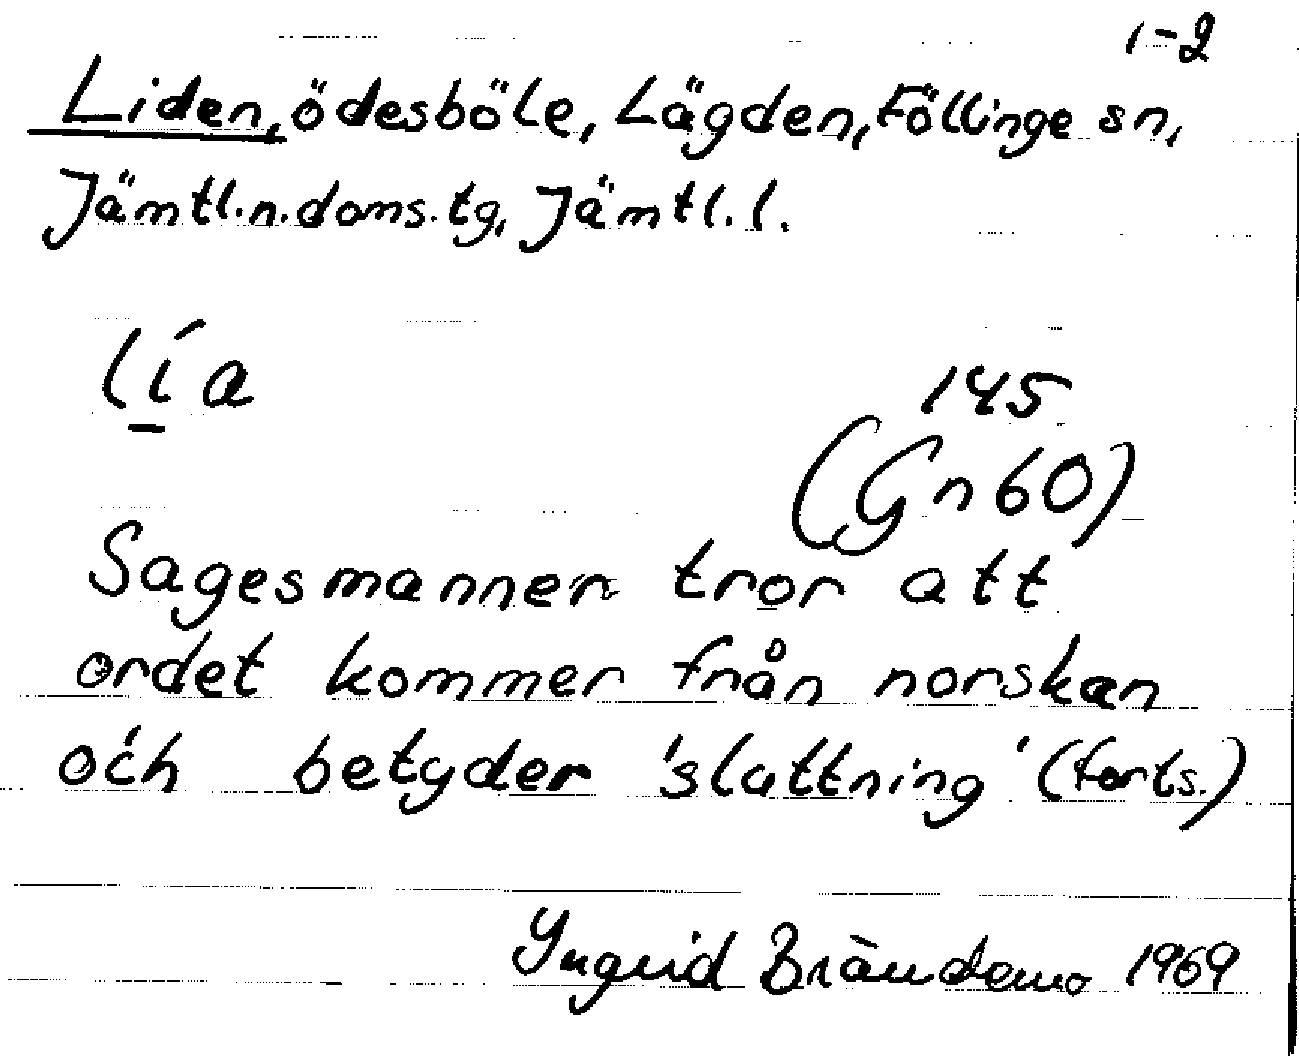 1-2
Liden, ödesböle, Lägden, Föllinge sn,
Jämtl.n.doms.tg, Jämtl.l.
lía
145
(Gn60)
Sagesmannen tror att
ordet kommer från norskan
och betyder 'sluttning' (forts.)
Yngvid Brändemo 1969